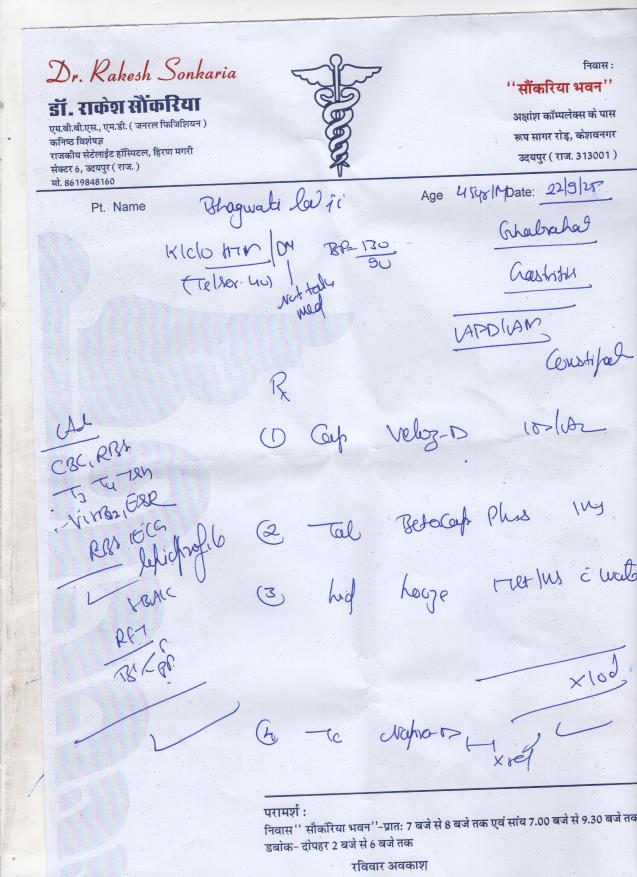 Dr. Rakesh Sonkaria
डॉ. राकेश सौंकरिया
एम.बी.बी.एस., एम.डी. ( जनरल फिजिशियन )
कनिष्ठ विशेषज्ञ
राजकीय सेटेलाईट हॉस्पिटल, हिरण मगरी
सेक्टर 6, उदयपुर ( राज. )
मो. 8619848160
निवास :
“सौंकरिया भवन”
अक्षांश कॉम्पलेक्स के पास
रूप सागर रोड़, केशवनगर
उदयपुर ( राज. 313001 )
Pt. Name Bhagwati lal ji Age 45yr/M Date: 22/9/25
K/c/o HTN / DM BP= 130/90
Not take
med
Ghabrahat
Gastritis
APD
Constipat
Rx
Adv
CBC, RBS
T3 T4 TSH
Vit B12, ESR
RBS ECG
lipid profile
HBA1C
RFT
(1) Cap Veloz-D
(2) Tab Betacap Plus
(3) Looze c water
x10d
(4)
परामर्श :
निवास “ सौंकरिया भवन”-प्रातः 7 बजे से 8 बजे तक एवं सांय 7.00 बजे से 9.30 बजे तक
डबोक- दोपहर 2 बजे से 6 बजे तक
रविवार अवकाश